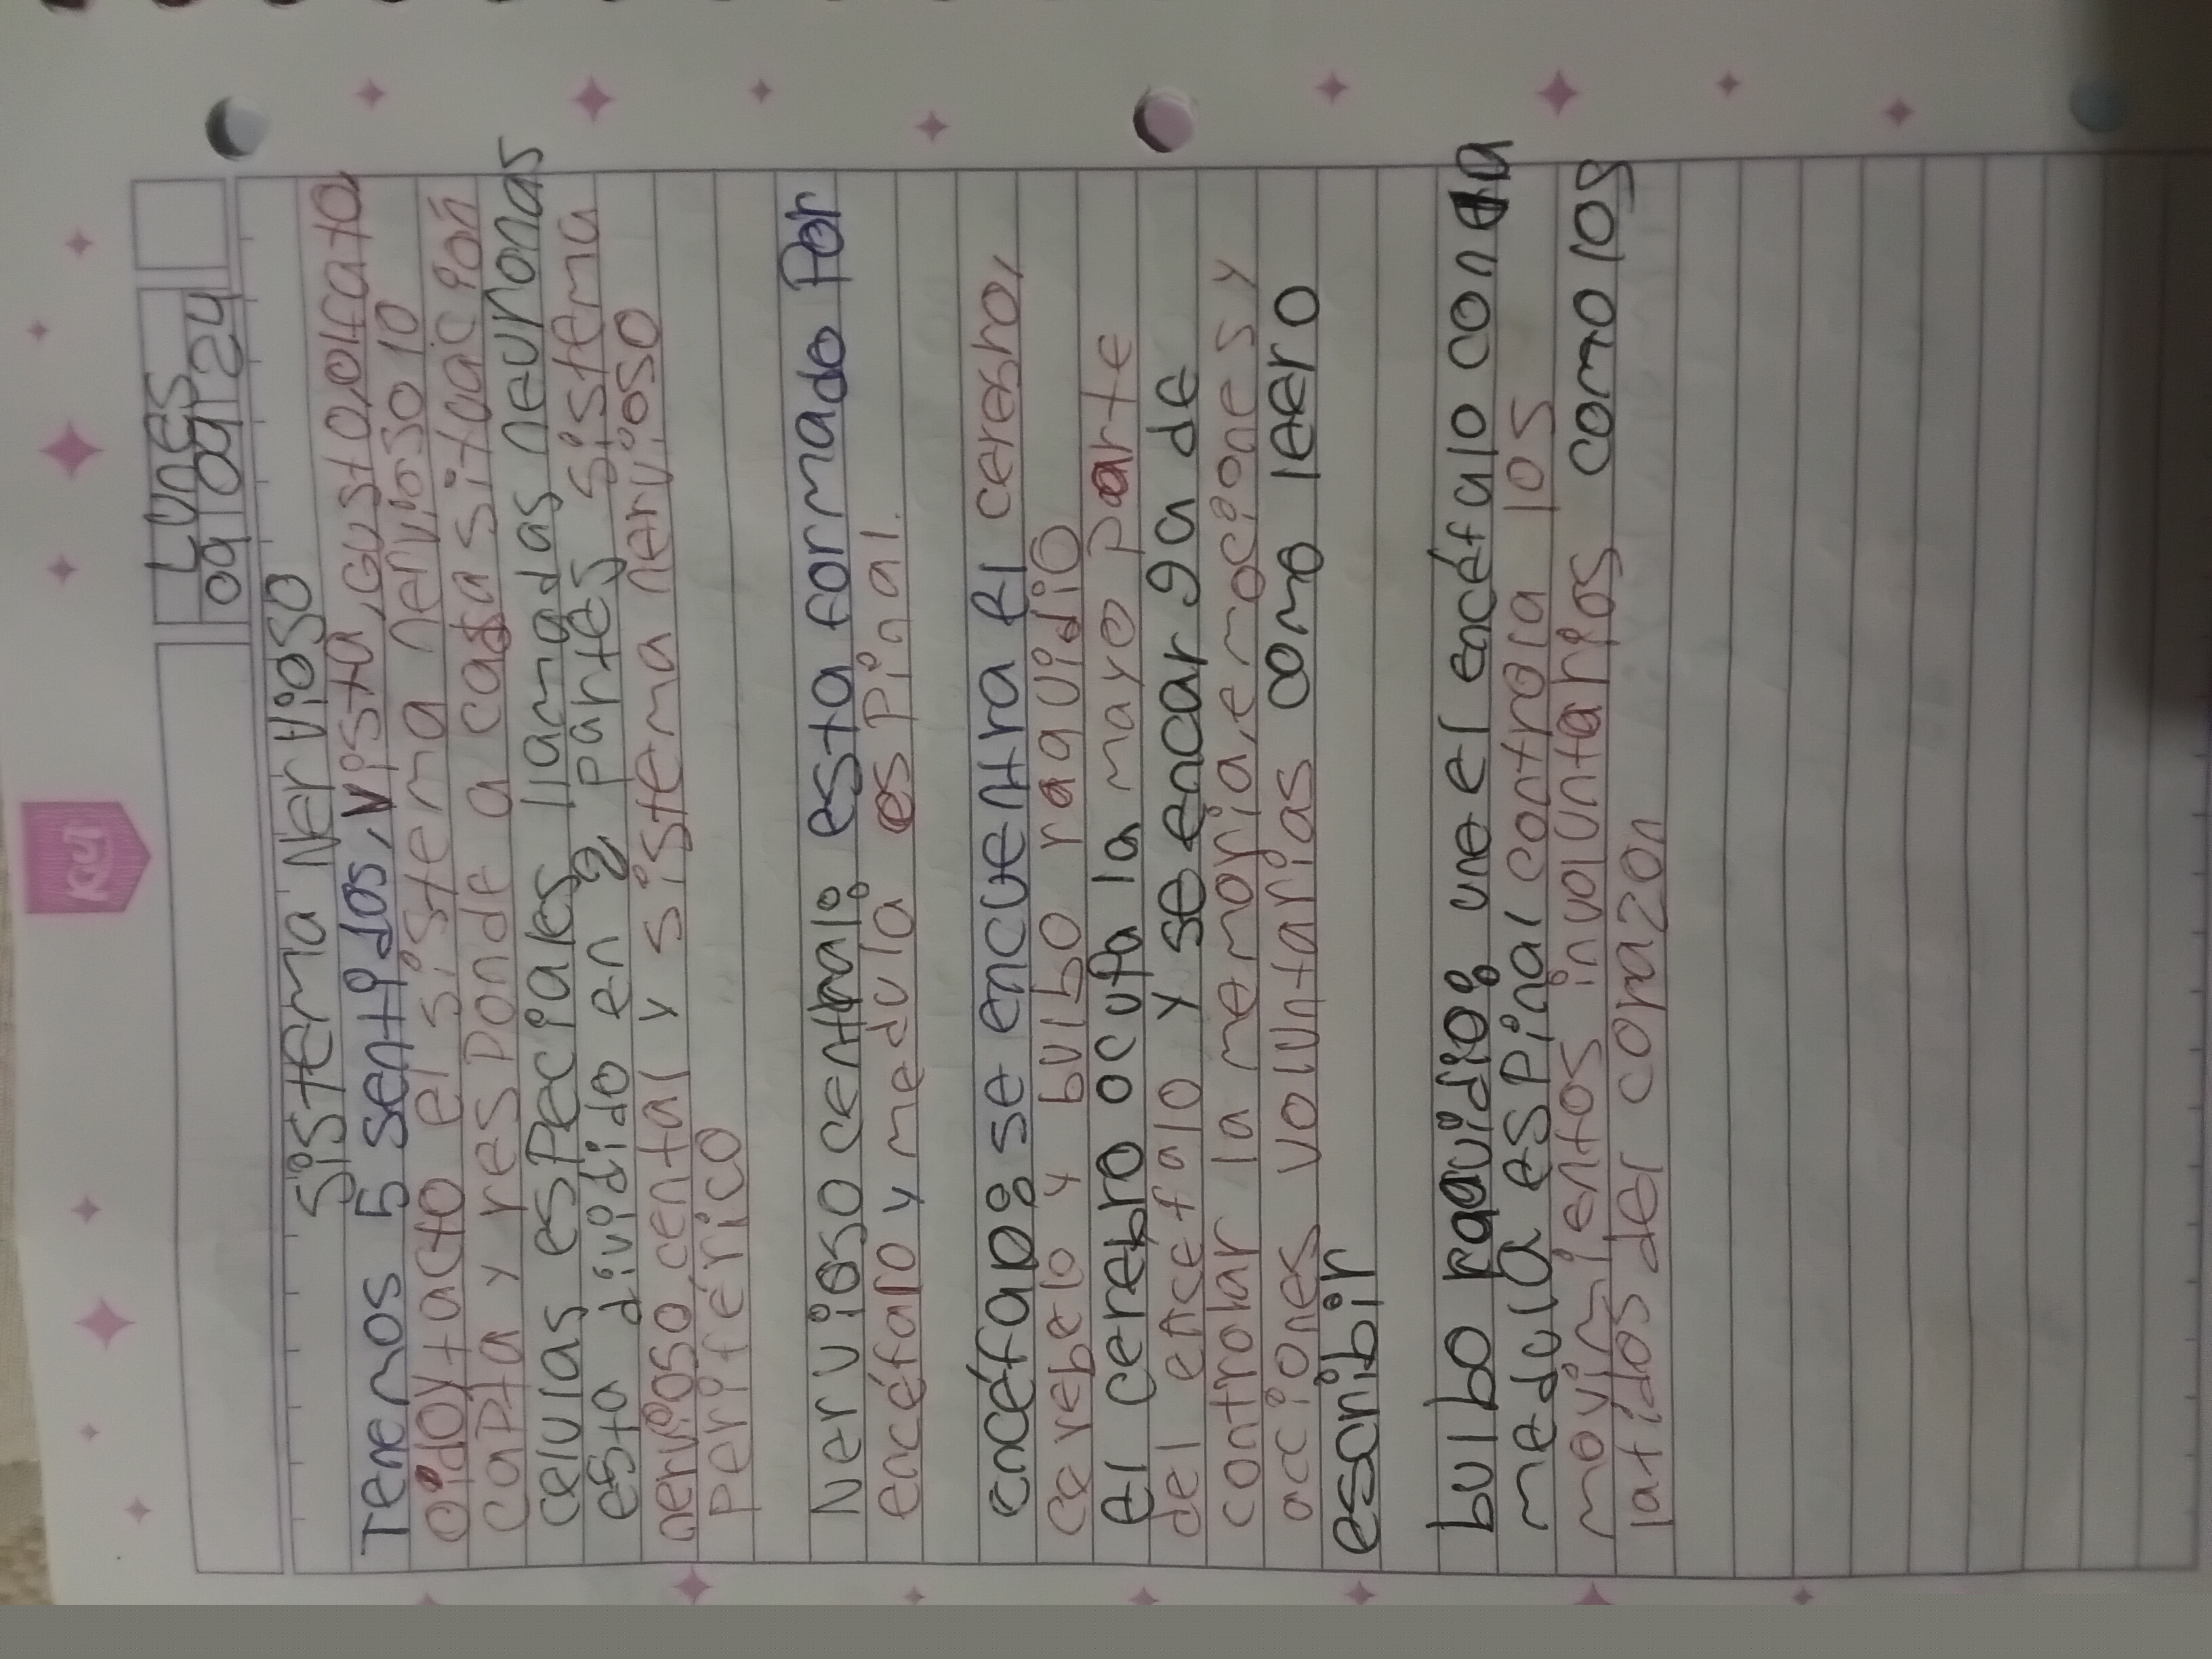 Kut
Lunes
09 09 24
Sistema Nervioso
Tenemos 5 sentidos, vista, Gusto, olfato
oido y tacto el sistema nervioso lo
capta y responde a cada situación
celulas especiales llamadas neuronas
esta dividido en 2 partes sistema
nervioso cental y sistema nervioso
periférico
Nervioso central: esta formado por
encéfalo y medula espinal.
encéfalo: se encuentra El cerebro,
cerebelo y bulbo raquidio
El cerebro ocupa la mayo parte
del encefalo y se encarga de
controlar la memoria, emociones y
acciones voluntarias como leer o
escribir
bulbo raquidio: une el encéfalo con la
medula espinal controla los
movimientos involuntarios como los
latidos del corazon